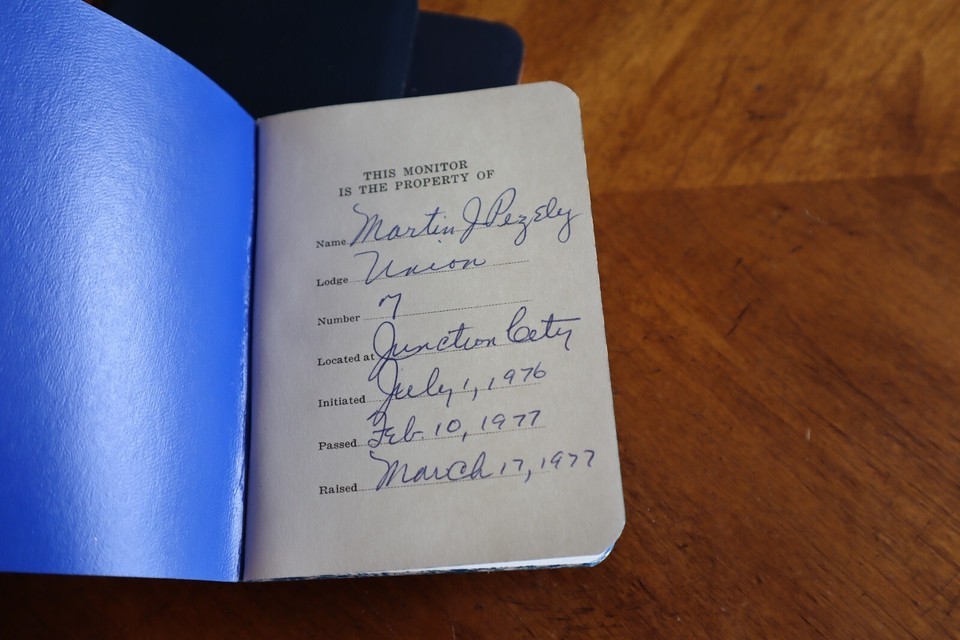 THIS MONITOR
IS THE PROPERTY OF
Name Martin J Pezely
Lodge Union
Number 7
Located at Junction City
Initiated July 1, 1976
Passed Feb. 10, 1977
Raised March 17, 1977